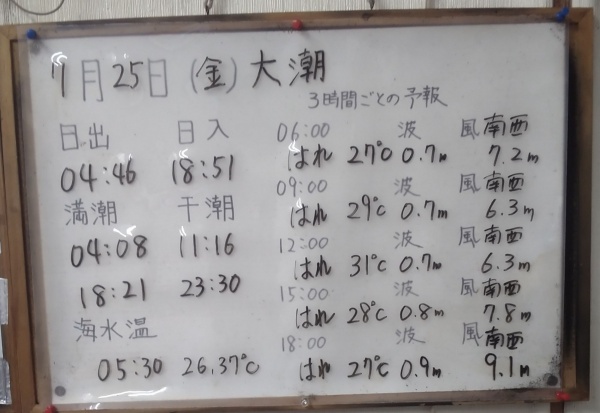 7月25日(金)大潮
日出 日入
04:46 18:51
満潮 干潮
04:08 11:16
18:21 23:30
海水温
05:30 26.37℃
3時間ごとの予報
06:00 波 風南西
はれ 27℃ 0.7m 7.2m
09:00 波 風南西
はれ 29℃ 0.7m 6.3m
12:00 波 風南西
はれ 31℃ 0.7m 6.3m
15:00 波 風南西
はれ 28℃ 0.8m 7.8m
18:00 波 風南西
はれ 27℃ 0.9m 9.1m